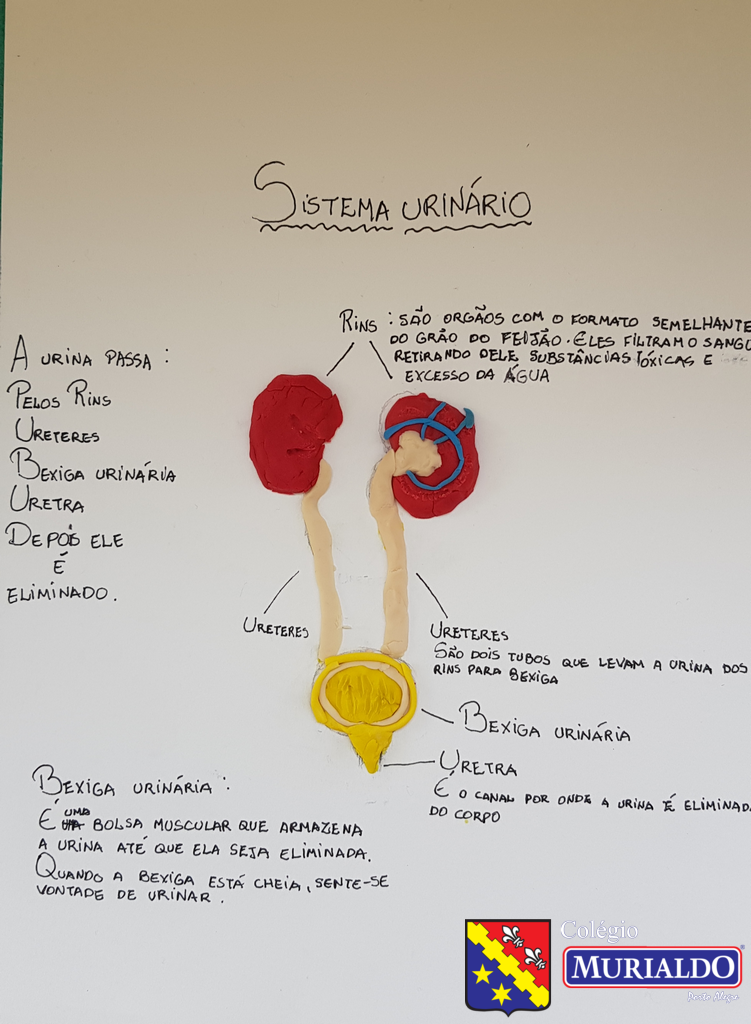 SISTEMA URINÁRIO
RINS : SÃO ORGÃOS COM O FORMATO SEMELHANTE
DO GRÃO DO FEIJÃO. ELES FILTRAM O SANGU
RETIRANDO DELE SUBSTÂNCIAS TÓXICAS E
EXCESSO DA ÁGUA
A URINA PASSA :
PELOS RINS
URETERES
BEXIGA URINÁRIA
URETRA
DEPOIS ELE
É
ELIMINADO.
URETERES
URETERES
SÃO DOIS TUBOS QUE LEVAM A URINA DOS
RINS PARA BEXIGA
BEXIGA URINÁRIA
URETRA
É O CANAL POR ONDE A URINA É ELIMINADA
DO CORPO
BEXIGA URINÁRIA :
É UMA BOLSA MUSCULAR QUE ARMAZENA
A URINA ATÉ QUE ELA SEJA ELIMINADA.
QUANDO A BEXIGA ESTÁ CHEIA, SENTE-SE
VONTADE DE URINAR.
Colégio
MURIALDO
Porto Alegre